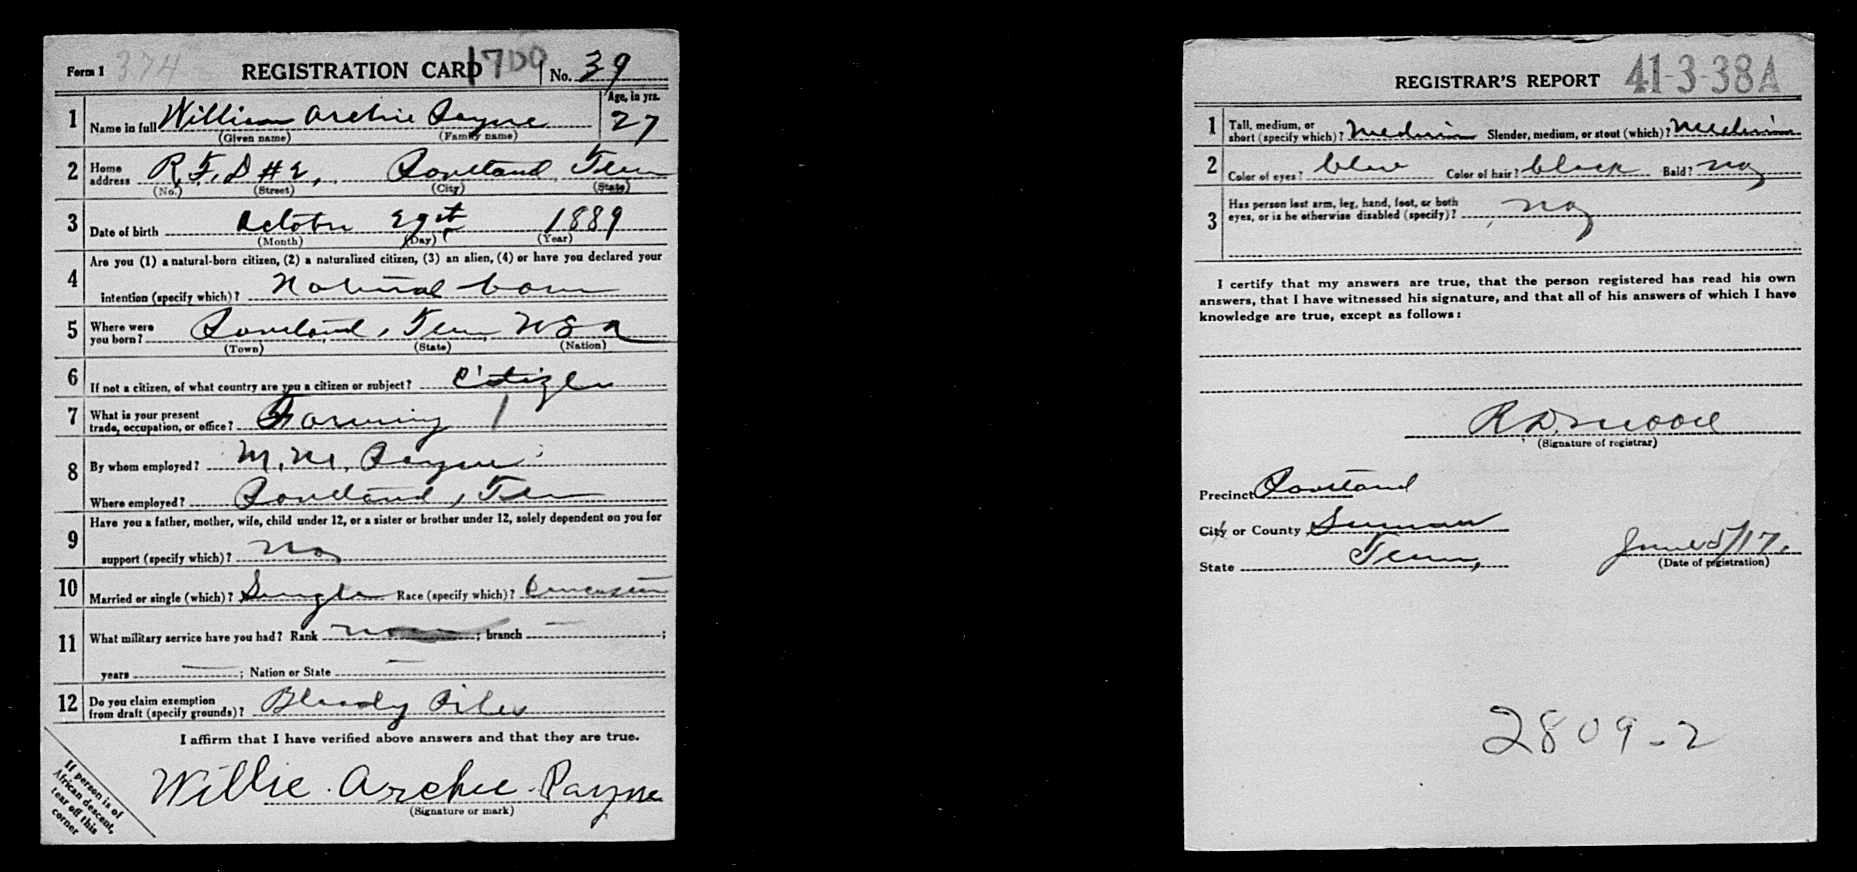 Form 1 374 REGISTRATION CARD 1700 No. 39
1 Name in full William Archie Payne Age, in yrs. 27
(Given name) (Family name)
2 Home address R.F.D #2, Portland Tenn
(No.) (Street) (City) (State)
3 Date of birth October 29st 1889
(Month) (Day) (Year)
4 Are you (1) a natural-born citizen, (2) a naturalized citizen, (3) an alien, (4) or have you declared your
intention (specify which)? Natural born
5 Where were you born? Portland, Tenn, USA
(Town) (State) (Nation)
6 If not a citizen, of what country are you a citizen or subject? Citizen
7 What is your present trade, occupation, or office? Farming 1
8 By whom employed? M. M. Payne
Where employed? Portland, Tenn
9 Have you a father, mother, wife, child under 12, or a sister or brother under 12, solely dependent on you for
support (specify which)? No
10 Married or single (which)? Single Race (specify which)? Caucasian
11 What military service have you had? Rank none ; branch — ;
years — ; Nation or State —
12 Do you claim exemption from draft (specify grounds)? Bloody Piles
I affirm that I have verified above answers and that they are true.
Willie Archie Payne
(Signature or mark)
If person is of
African descent,
tear off this
corner
REGISTRAR'S REPORT 41-3-38A
1 Tall, medium, or short (specify which)? Medium Slender, medium, or stout (which)? Medium
2 Color of eyes? blue Color of hair? black Bald? No
3 Has person lost arm, leg, hand, foot, or both eyes, or is he otherwise disabled (specify)? No
I certify that my answers are true, that the person registered has read his own
answers, that I have witnessed his signature, and that all of his answers of which I have
knowledge are true, except as follows:
R D Moore
(Signature of registrar)
Precinct Portland
City or County Sumner
State Tenn, June 5/17.
(Date of registration)
2809-2